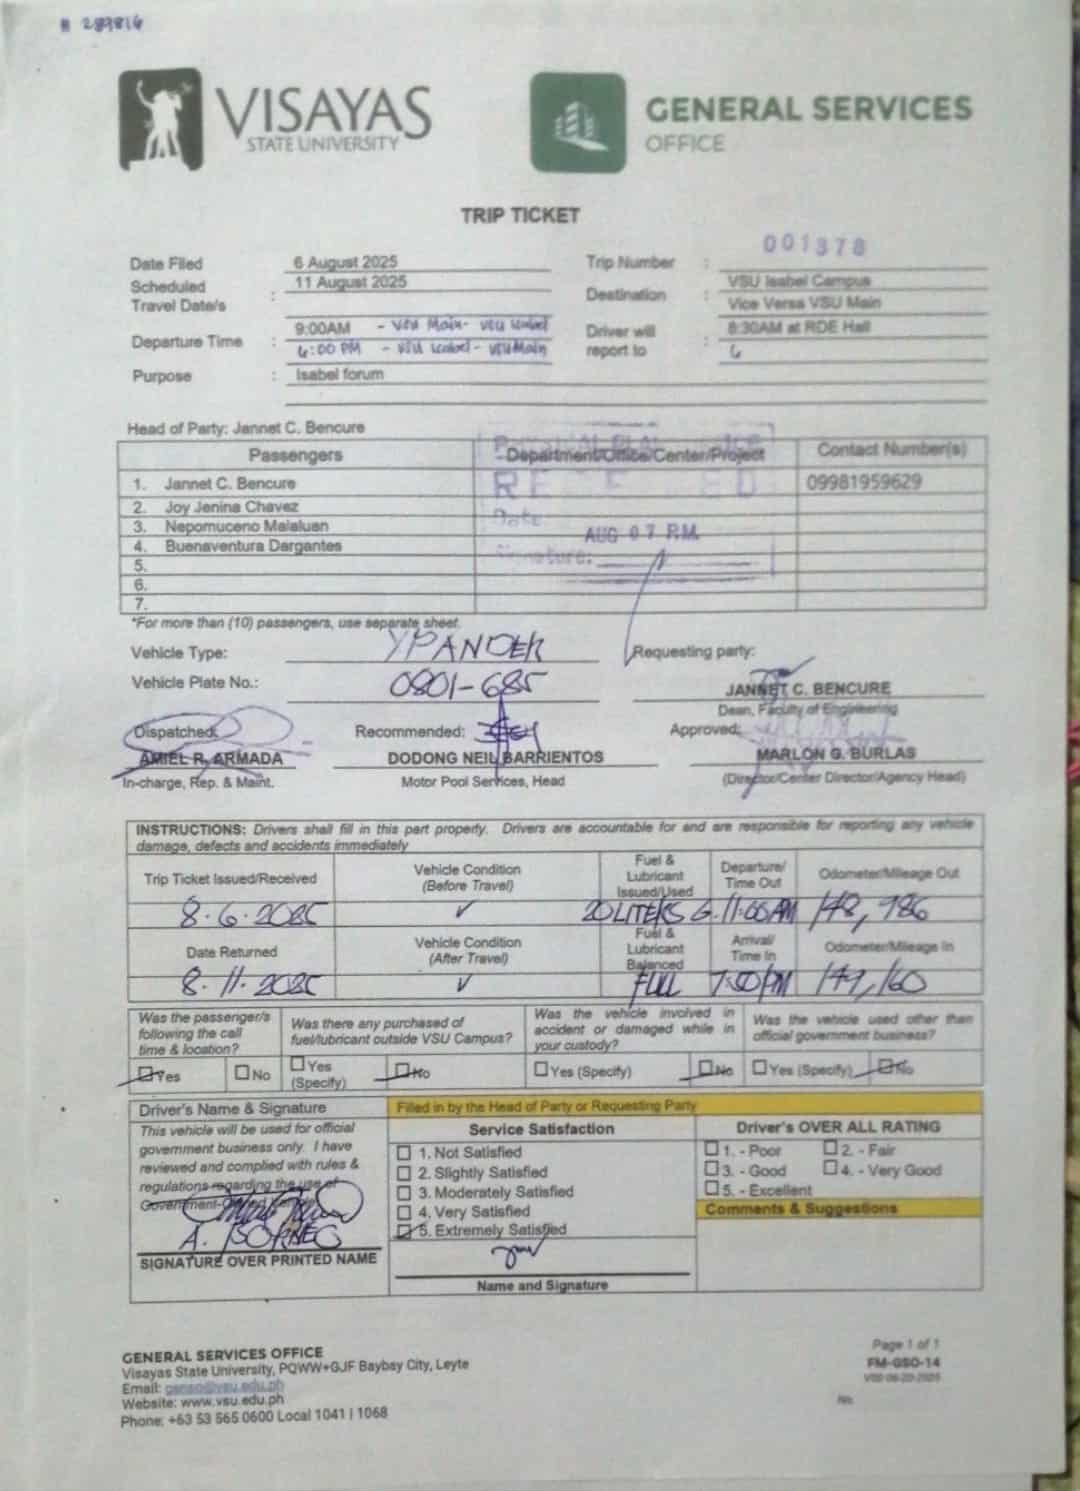 # 287816
VISAYAS
STATE UNIVERSITY
GENERAL SERVICES
OFFICE
TRIP TICKET
001378
Date Filed 6 August 2025 Trip Number :
Scheduled Travel Date/s : 11 August 2025 Destination : VSU Isabel Campus
Vice Versa VSU Main
Departure Time : 9:00AM - VSU Main - VSU Isabel Driver will report to : 8:30AM at RDE Hall
6:00 PM - VSU Isabel - VSU Main
Purpose : Isabel forum
Head of Party: Jannet C. Bencure
Passengers Department/Office/Center/Project Contact Number(s)
1. Jannet C. Bencure 09981959629
2. Joy Jenina Chavez
3. Nepomuceno Malaluan
4. Buenaventura Dargantes
5.
6.
7.
RECEIVED
Date
AUG 07 P.M.
Signature:
*For more than (10) passengers, use separate sheet.
Vehicle Type: XPANDER Requesting party:
Vehicle Plate No.: 0801-685
JANNET C. BENCURE
Dean, Faculty of Engineering
Dispatched: Recommended: Approved:
AMIEL R. ARMADA DODONG NEIL BARRIENTOS MARLON G. BURLAS
In-charge, Rep. & Maint. Motor Pool Services, Head (Director/Center Director/Agency Head)
INSTRUCTIONS: Drivers shall fill in this part properly. Drivers are accountable for and are responsible for reporting any vehicle
damage, defects and accidents immediately
Trip Ticket Issued/Received Vehicle Condition (Before Travel) Fuel & Lubricant Issued/Used Departure/ Time Out Odometer/Mileage Out
8-6-2025 ✓ 20 LITERS G. 11:00AM 148,986
Date Returned Vehicle Condition (After Travel) Fuel & Lubricant Balanced Arrival/ Time In Odometer/Mileage In
8-11-2025 ✓ FULL 7:50PM 149,160
Was the passenger/s following the call time & location? Was there any purchased of fuel/lubricant outside VSU Campus? Was the vehicle involved in accident or damaged while in your custody? Was the vehicle used other than official government business?
Yes No Yes (Specify) No Yes (Specify) No Yes (Specify) No
Driver's Name & Signature Filled in by the Head of Party or Requesting Party
This vehicle will be used for official
government business only. I have
reviewed and complied with rules &
regulations regarding the use of
A. BORNEO
SIGNATURE OVER PRINTED NAME
Service Satisfaction
1. Not Satisfied
2. Slightly Satisfied
3. Moderately Satisfied
4. Very Satisfied
5. Extremely Satisfied
Name and Signature
Driver's OVER ALL RATING
1. - Poor 2. - Fair
3. - Good 4. - Very Good
5. - Excellent
Comments & Suggestions
GENERAL SERVICES OFFICE
Visayas State University, PQWW+GJF Baybay City, Leyte
Email: gsnso@vsu.edu.ph
Website: www.vsu.edu.ph
Phone: +63 53 565 0600 Local 1041 | 1068
Page 1 of 1
FM-GSO-14
No.